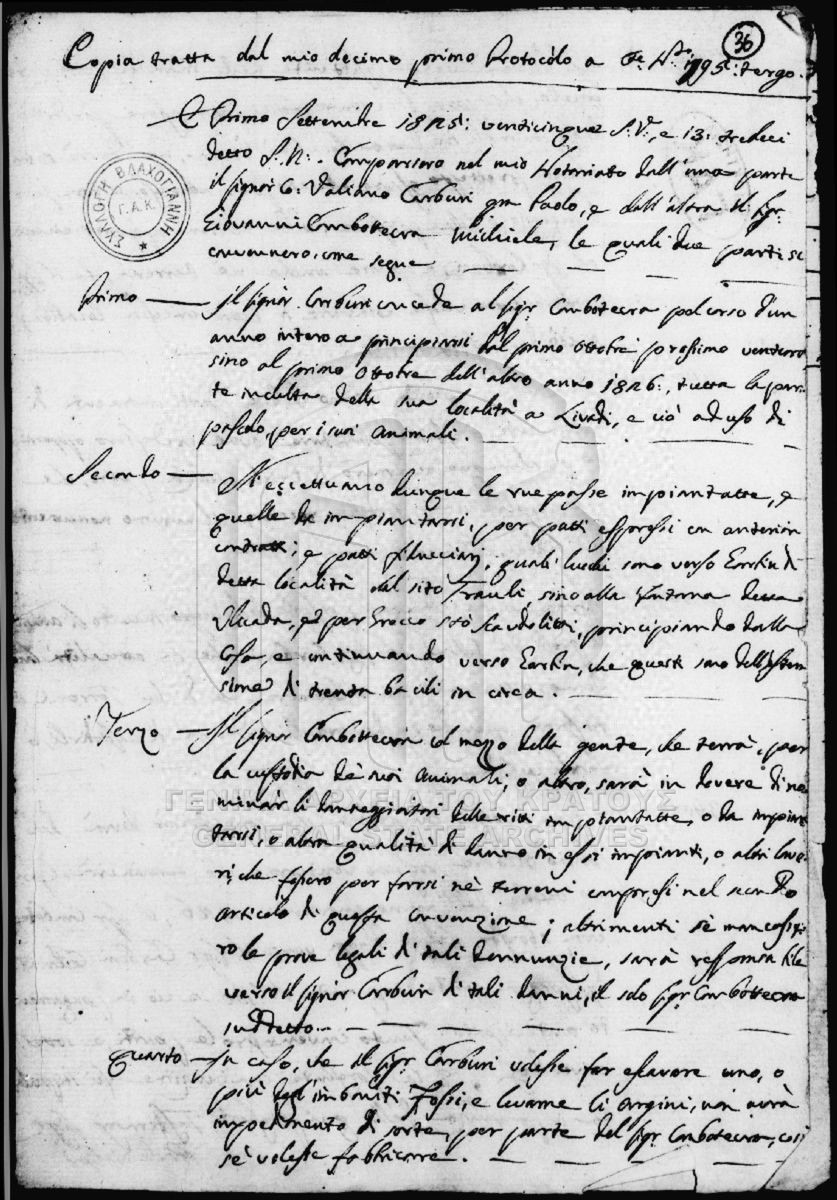 36
Copia tratta dal mio decimo primo Protocòlo a 195: tergo.
Primo Settembre 1825: venticinque S:V:, e 13: tredeci
detto S:N:. Comparsero nel mio Notariato dall'una parte
il signor Co: Valiano Carburi qm Paolo, e dall'altra il sigr
Giovanni Combottecra Michiele, le quali due parti si
convennero, come segue
Primo — Il signor Carburi concede al sigr Combotecra pel corso d'un
anno intero a principiarsi dal primo ottobre prossimo venturo
sino al primo ottobre dell'altro anno 1826:, tutta la par-
te inculta della sua località a Livadi, e ciò ad uso di
pascolo, per i suoi animali.
Secondo — S'eccettuano dunque le uve passe impiantatte, e
quelle da impiantarsi, per patti espressi con anteriori
contratti, e patti fiduciarj, quali luochi sono verso
detta località dal sitò Frauli, sino alla Fontana detta
e per sitò principiando dalla
Casa, e continuando verso che questi sono dell'esten-
sione di trenta bacili in circa.
Terzo — Il signor Combottecra col mezzo della gente, che terrà, per
la custodia de' suoi animali, o altro, sarà in dovere di no-
minàr li danneggiatori delle viti impiantatte, o da impian-
tarsi, o altra qualità di danno in essi impianti, o altri lavo-
ri, che fossero per farsi nè terreni compresi nel secondo
articolo di questa convenzione; altrimenti sè mancassi-
ro le prove legali di tali dannunzie, sarà responsabile
verso il signor Carburi di tali danni, il solo sigr Combottecra
suddetto.
Quarto — In caso, che il sigr Carburi volesse far escavare uno, o
più degl'imboniti Fossi, e levarne li argini, non avrà
impedimento di sorte, per parte del sigr Combotecra, così
sè volesse fabbricare.
ΣΥΛΛΟΓΗ ΒΛΑΧΟΓΙΑΝΝΗ
Γ.Α.Κ.
ΓΕΝΙΚΑ ΑΡΧΕΙΑ ΤΟΥ ΚΡΑΤΟΥΣ
GENERAL STATE ARCHIVES